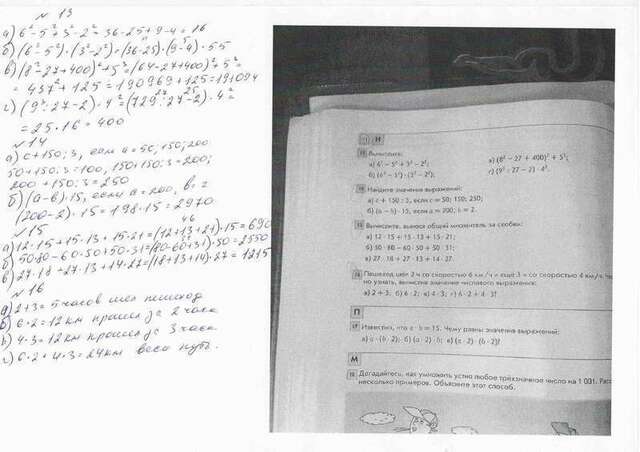 № 13
а) 6² - 5² + 3² - 2² = 36 - 25 + 9 - 4 = 16
б) (6² - 5²) · (3² - 2²) = (36-25) · (9-4) · 55
в) (8² - 27 + 400)² + 5³ = (64 - 27 + 400)² + 5³ =
= 437² + 125 = 190969 + 125 = 191094
г) (9³ : 27 - 2) · 4² = (729 : 27 - 2) · 4² =
= 25 · 16 = 400
№ 14
а) c + 150 : 3, если c = 50; 150; 200
50 + 150 : 3 = 100, 150 + 150 : 3 = 200;
200 + 150 : 3 = 250
б) (a - в) · 15, если a = 200, в = 2
(200 - 2) · 15 = 198 · 15 = 2970
№ 15
а) 12 · 15 + 15 · 13 + 15 · 21 = (12 + 13 + 21) · 15 = 690
б) 50 · 80 - 60 · 50 + 50 · 31 = (80 - 60 + 31) · 50 = 2550
в) 27 · 18 + 27 · 13 + 14 · 27 = (18 + 13 + 14) · 27 = 1215
№ 16
а) 2 + 3 = 5 часов шел пешеход
б) 6 · 2 = 12 км прошел за 2 часа
в) 4 · 3 = 12 км прошел за 3 часа
г) 6 · 2 + 4 · 3 = 24 км весь путь.
Н
Вычислите:
а) 6² - 5² + 3² - 2²;
в) (8² - 27 + 400)² + 5³;
б) (6² - 5²) · (3² - 2²);
г) (9³ : 27 - 2) · 4².
Найдите значения выражений:
а) c + 150 : 3, если c = 50; 150; 250;
б) (a - b) · 15, если a = 200; b = 2.
15 Вычислите, вынося общий множитель за скобки:
а) 12 · 15 + 15 · 13 + 15 · 21;
б) 50 · 80 - 60 · 50 + 50 · 31;
в) 27 · 18 + 27 · 13 + 14 · 27.
16 Пешеход шёл 2 ч со скоростью 6 км/ч и ещё 3 ч со скоростью 4 км/ч.
но узнать, вычислив значение числового выражения:
а) 2 + 3; б) 6 · 2; в) 4 · 3; г) 6 · 2 + 4 · 3?
П
17 Известно, что a · b = 15. Чему равны значения выражений:
а) a · (b · 2); б) (a · 2) · b; в) (a · 2) · (b · 2)?
М
18 Догадайтесь, как умножить устно любое трёхзначное число на 1 001.
несколько примеров. Объясните этот способ.